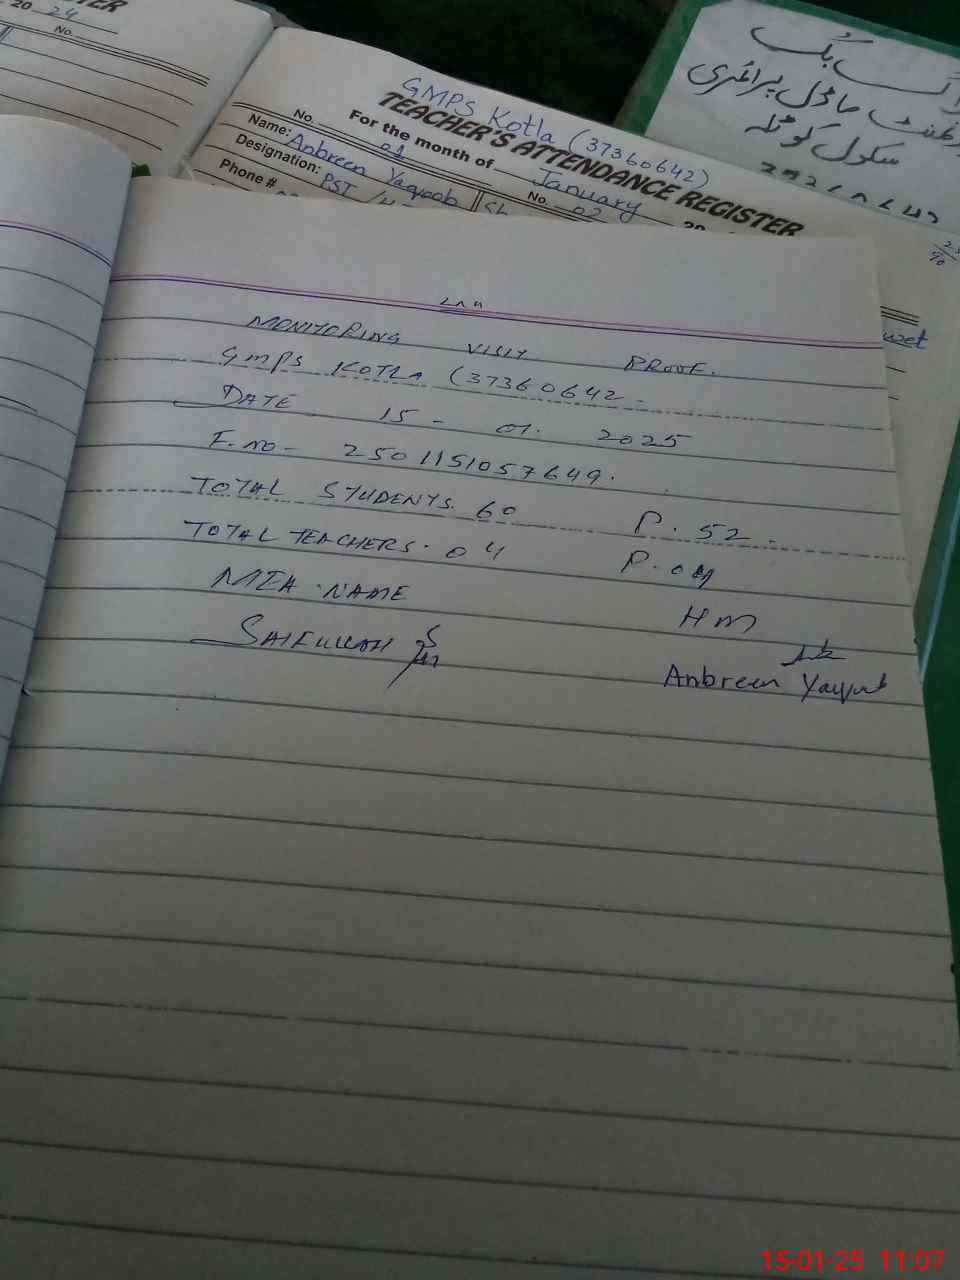 TER
20 24
No.
GMPS Kotla (37360642)
TEACHER'S ATTENDANCE REGISTER
For the month of January 20
No. 01
No. 02
Name: Anbreen Yaqoob
Designation: PST
Phone #
سکول کوٹلہ
MONITORING VISIT PROOF.
GMPS KOTLA (37360642.
DATE 15 - 01. 2025
F.no- 2501151057649.
TOTAL STUDENTS. 60 P. 52.
TOTAL TEACHERS. 04 P. 04
MEA. NAME HM
SAIFULLAH
Anbreen Yaqub
15-01-25 11:07